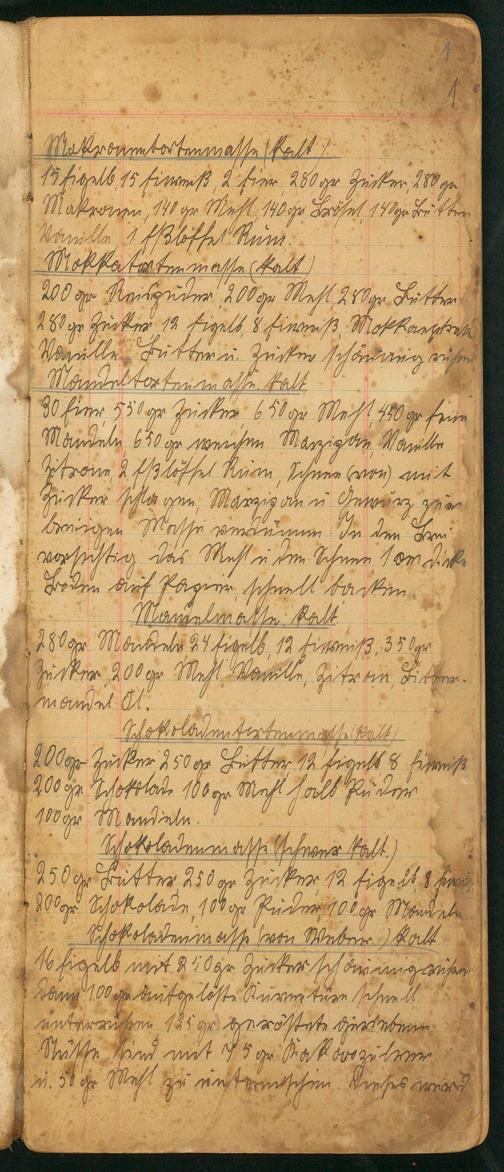 1
1
Makronentortenmasse (kalt)
15 Eigelb 15 Eiweiß, 2 Eier 280 gr Zucker, 280 gr
Makronen, 140 gr Mehl 140 gr Brösel, 140 gr Butter
Vanille 1 Eßlöffel Rum.
Mokkatortenmasse (kalt)
200 gr Reispuder 200 gr Mehl 280 gr Butter
280 gr Zucker 12 Eigelb, 8 Eiweiß, Mokkaextrakt
Vanille. Butter u. Zucker schaumig rühren
Mandeltortenmasse kalt
30 Eier, 550 gr Zucker 650 Mehl 450 gr fein
Mandeln 650 gr weichen Marzipan, Vanille
Zitrone 2 Eßlöffel Rum, Schnee (von) mit
Zucker schlagen, Marzipan u Gewürz zur
Masse verdünnen In den Brei
vorsichtig das Mehl u den Schnee 1 cm dicke
Böden auf Papier schnell backen.
Mandelmasse. kalt
280 gr Mandeln 24 Eigelb, 12 Eiweiß, 350 gr
Zucker, 200 gr Mehl Vanille, Zitron, Bitter-
mandel Öl.
Schokoladentortenmasse (kalt)
200 gr Zucker 250 gr Butter 12 Eigelb 8 Eiweiß
200 gr Schoklade 100 gr Mehl halb Puder
100 gr Mandeln.
Schokoladenmasse (schwer kalt.)
250 gr Butter 250 gr Zucker, 12 Eigelb, 8 Eiweiß
200 gr Schokolade, 100 gr Puder, 100 gr Mandeln
Schokoladenmasse (von Weber.) kalt
16 Eigelb mit 250 gr Zucker schaumigrühren
dann 100 gr aufgelöste Kuvertüre schnell
unterrühren 125 gr geröstete geriebene
Nüsse sind mit 75 gr Kakaopulver
u. 50 gr Mehl zu untermischen. Dieses wird